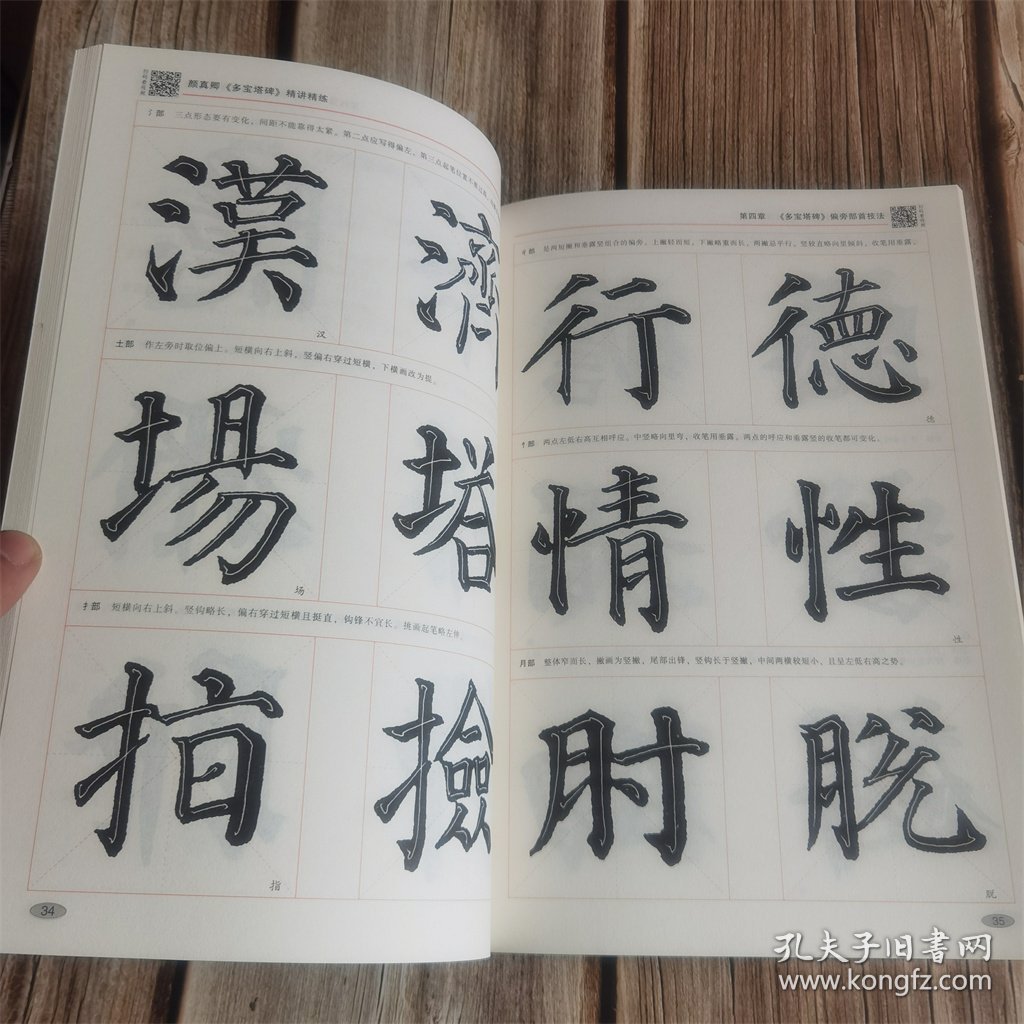 颜真卿《多宝塔碑》精讲精练
氵部 三点形态要有变化，间距不能靠得太紧。第二点应写得偏左，第三点起笔位置
漢 濟
汉
土部 作左旁时取位偏上。短横向右上斜，竖偏右穿过短横，下横画改为提。
場 塔
场
扌部 短横向右上斜。竖钩略长，偏右穿过短横且挺直，钩锋不宜长。挑画起笔略左伸。
指 撿
指
34
第四章 《多宝塔碑》偏旁部首技法
彳部 是两短撇和垂露竖组合的偏旁。上撇轻而短，下撇略重而长，两撇总平行。竖较直略向里倾斜，收笔用垂露。
行 德
德
忄部 两点左低右高互相呼应。中竖略向里弯，收笔用垂露。两点的呼应和垂露竖的收笔都可变化。
情 性
性
月部 整体窄而长，撇画为竖撇，尾部出锋，竖钩长于竖撇，中间两横较短小，且呈左低右高之势。
肘 脱
脱
35
孔夫子旧书网
www.kongfz.com